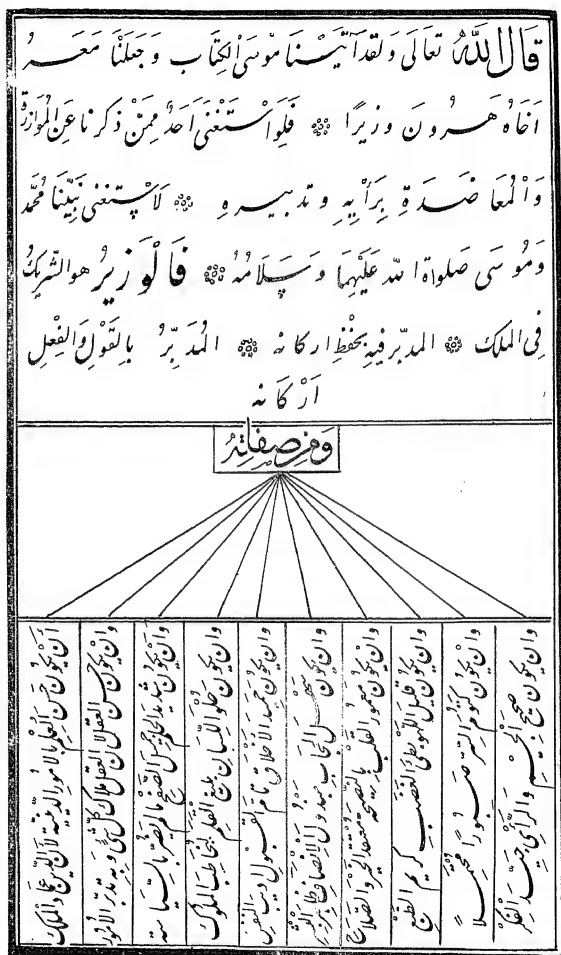 قَالَ اللّٰهُ تعَالَى وَلقَدْ اٰتَيْـنَا مُوْسَى الْكِتَابَ وَجَعَلْنَا مَعَـهُ
اَخَاهُ هٰـرُونَ وزيرًا ۞ فَلَوِ اسْتَغْنَى اَحَدٌ مِمَّنْ ذكرنا عَنِ الْمُوَازرَةِ
وَالْمُعَاضَـدَةِ بِرَأْيِهِ وتدبيـره ۞ لَاسْتغنى نَبِيُّنَا مُحَمَّد
وَمُوسَى صلواة الله عَلَيْهِمَا وَسَلَامُهُ ۞ فَالْوَزيرُ هو الشَّرِيكُ
فِى الملك ۞ المدبّر فيهِ بحفْظِ اركانه ۞ الْمُدَبِّرُ بالقَوْلِ وَالفِعْلِ
اَرْكانه
وَمِنْ صِفَاتِهِ
وان يكون صَحِيحَ الْجِسْـمِ وَالرَّأْىِ جَيِّدَ الْفِكْرِ
وان يكون كَتُومَ السِّرِّ صَبُورًا محتمِلًا
وان يكون قليل اللَّهْوِ بَطِئَ الْغَضَبِ كريم الطَّبع
وان يكون معمُورَ القَلْبِ بالنَّصِيحَة معتقد الخير والصَّلَاح
وان يكون سَهْلَ الْحِجَابِ مبذول الْاِنْصَافِ
وان يكون حميد الْاَخْلَاقِ تام القبول اديب النَّفْسِ
وان يكون حلو اللِّسَانِ بليغ القَلَمِ لمخاطبة الملوك
وان يكون شديد الحلم حسن الصَّفْحِ مالم يضرّ بالسِّيَاسة
وان يكون حسن العقل لان العقل ملاك كل شىء وبه تدبّر الْاُمُور
اَنْ يَكُونَ حَسَنَ الْعِلْمِ بالامور الدِّينِيَّة لِاَنَّ الدِّين عماد الملك